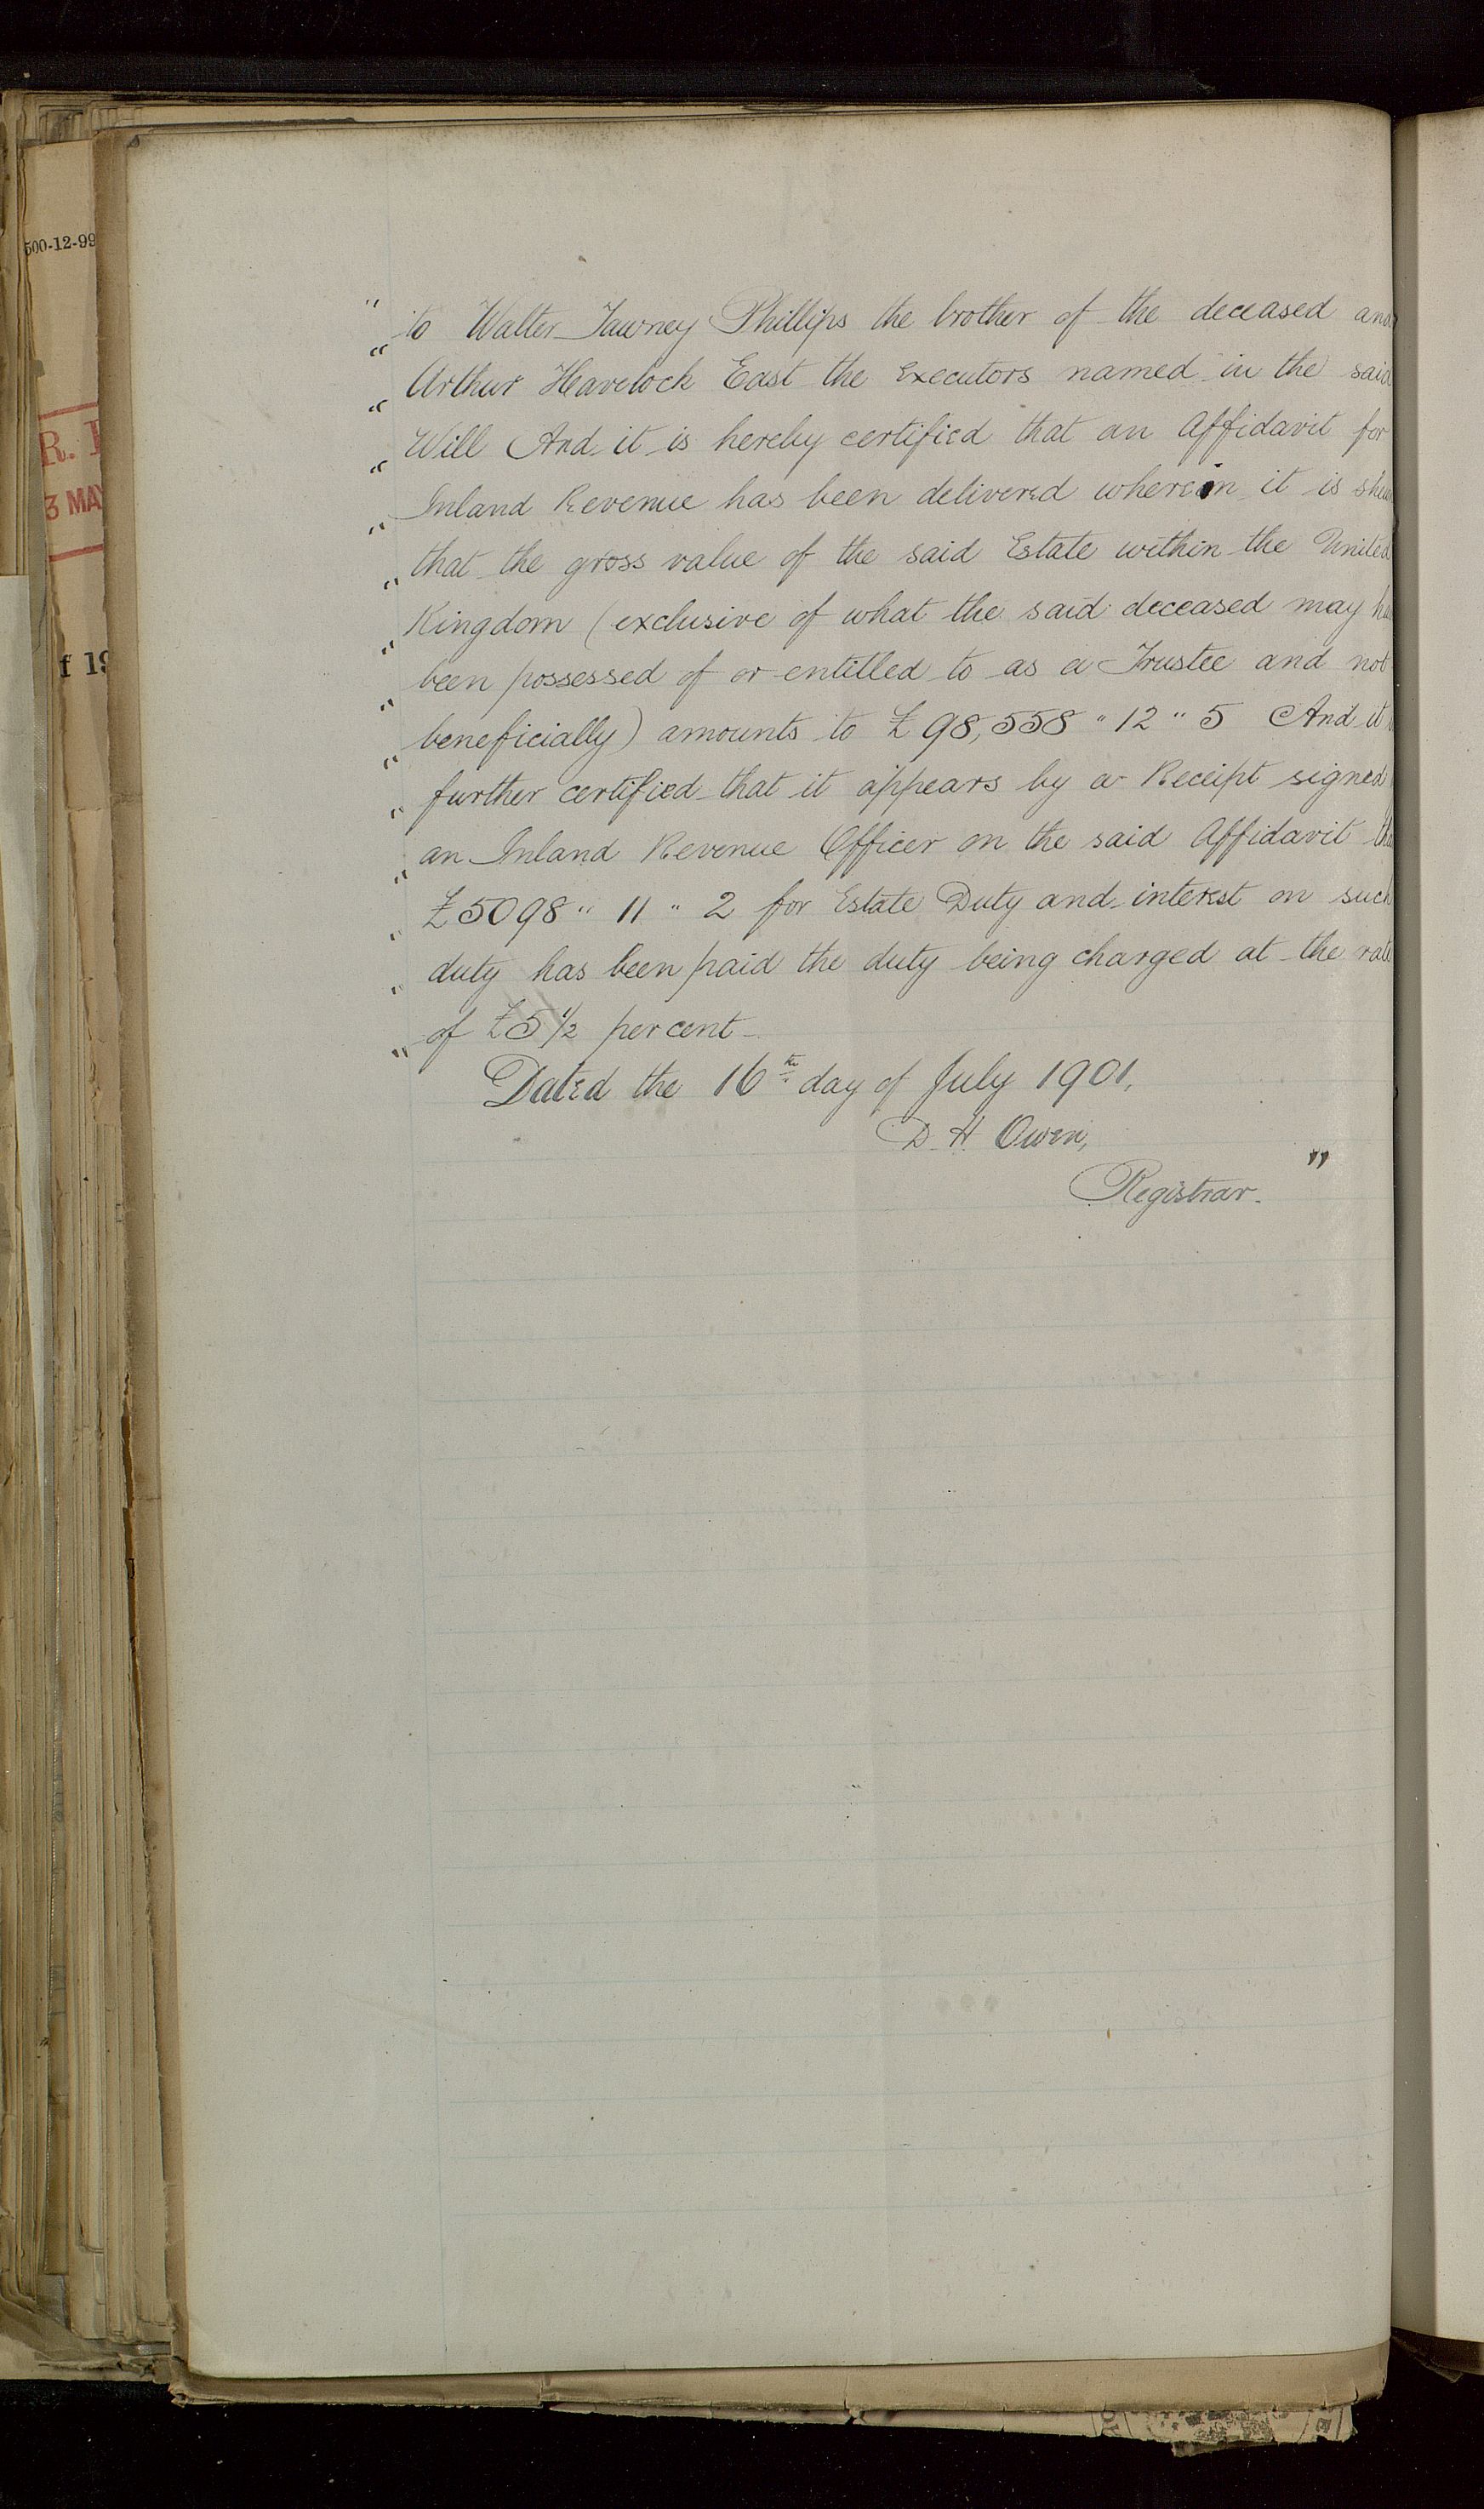 500-12-99
R.
3 MAY
f 19
" to Walter Tawney Phillips the brother of the deceased and
" Arthur Havelock East the Executors named in the said
" Will And it is hereby certified that an Affidavit for
" Inland Revenue has been delivered wherein it is shew
" that the gross value of the said Estate within the United
" Kingdom (exclusive of what the said deceased may ha
" been possessed of or entitled to as a Trustee and not
" beneficially) amounts to £98,558 " 12 " 5 And it
" further certified that it appears by a Receipt signed
" an Inland Revenue Officer on the said Affidavit tha
" £5098 " 11 " 2 for Estate Duty and interest on such
" duty has been paid the duty being charged at the rate
" of £5 1/2 per cent
" Dated the 16th day of July 1901,
D. H. Owen,
Registrar. "